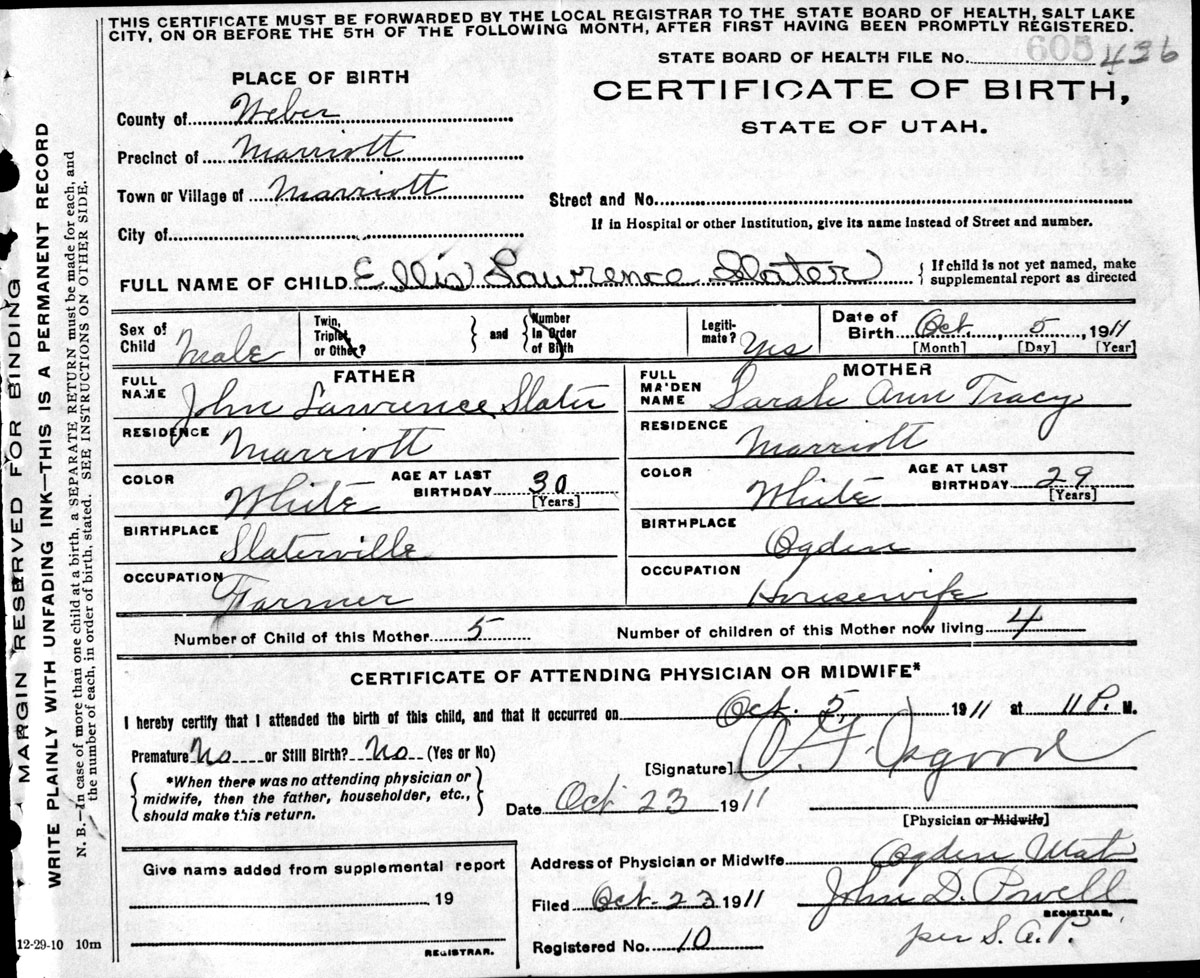 THIS CERTIFICATE MUST BE FORWARDED BY THE LOCAL REGISTRAR TO THE STATE BOARD OF HEALTH, SALT LAKE
CITY, ON OR BEFORE THE 5TH OF THE FOLLOWING MONTH, AFTER FIRST HAVING BEEN PROMPTLY REGISTERED.
STATE BOARD OF HEALTH FILE No. 605 436
PLACE OF BIRTH
CERTIFICATE OF BIRTH,
STATE OF UTAH.
County of Weber
Precinct of Marriott
Town or Village of Marriott
Street and No.
If in Hospital or other Institution, give its name instead of Street and number.
City of
FULL NAME OF CHILD Ellis Lawrence Slater { If child is not yet named, make
supplemental report as directed
Sex of
Child Male
Twin,
Triplet
or Other?
} and {
Number
in Order
of Birth
Legiti-
mate? Yes
Date of
Birth Oct. 5, 1911
[Month] [Day] [Year]
FATHER
FULL
NAME John Lawrence Slater
RESIDENCE Marriott
COLOR White
AGE AT LAST
BIRTHDAY 30
[Years]
BIRTHPLACE Slaterville
OCCUPATION Farmer
MOTHER
FULL
MAIDEN
NAME Sarah Ann Tracy
RESIDENCE Marriott
COLOR White
AGE AT LAST
BIRTHDAY 29
[Years]
BIRTHPLACE Ogden
OCCUPATION Housewife
Number of Child of this Mother 5
Number of children of this Mother now living 4
CERTIFICATE OF ATTENDING PHYSICIAN OR MIDWIFE*
I hereby certify that I attended the birth of this child, and that it occurred on Oct. 5, 1911 at 11 P. M.
Premature No or Still Birth? No (Yes or No)
*When there was no attending physician or
midwife, then the father, householder, etc.,
should make this return.
[Signature] Osgood
Date Oct 23 1911
[Physician or Midwife]
Address of Physician or Midwife Ogden Utah
Give name added from supplemental report
19
REGISTRAR.
Filed Oct. 23 1911 John D. Powell
REGISTRAR.
per S. A. P.
Registered No. 10
12-29-10 10m
MARGIN RESERVED FOR BINDING
WRITE PLAINLY WITH UNFADING INK—THIS IS A PERMANENT RECORD
N. B.—In case of more than one child at a birth, a SEPARATE RETURN must be made for each, and
the number of each, in order of birth, stated. SEE INSTRUCTIONS ON OTHER SIDE.